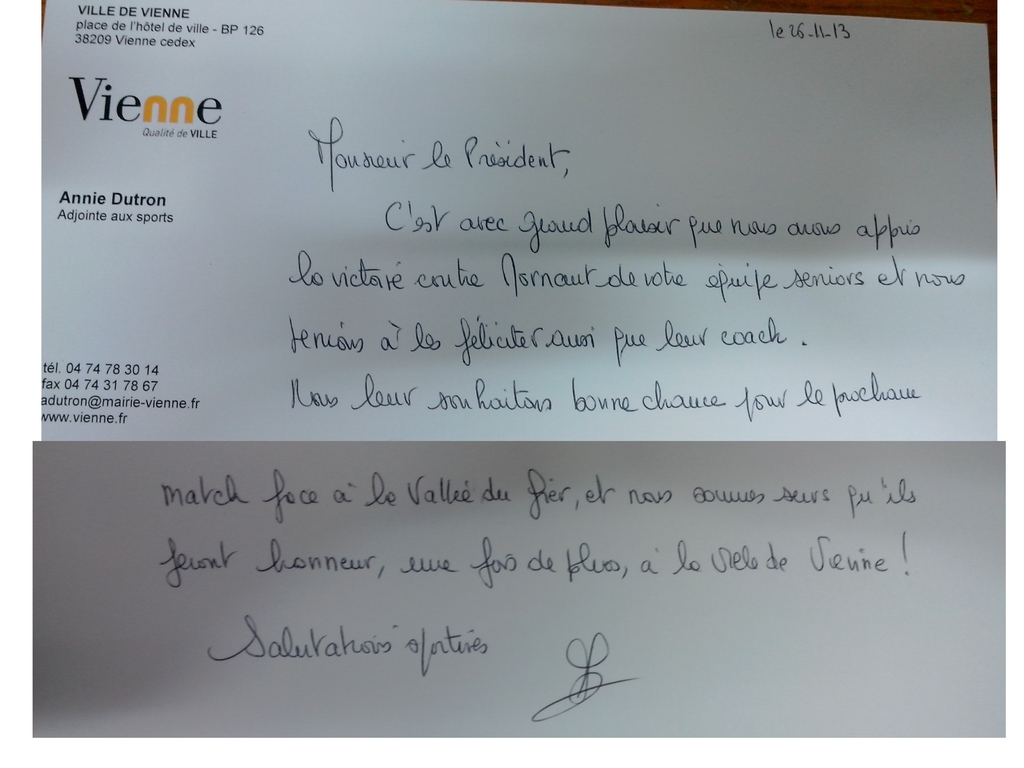 VILLE DE VIENNE
place de l'hôtel de ville - BP 126
38209 Vienne cedex
le 26-11-13
Vienne
Qualité de VILLE
Annie Dutron
Adjointe aux sports
Monsieur le Président,
C'est avec grand plaisir que nous avons appris
la victoire contre Mornant de votre équipe seniors et nous
tenions à les féliciter ainsi que leur coach.
Nous leur souhaitons bonne chance pour le prochain
tél. 04 74 78 30 14
fax 04 74 31 78 67
adutron@mairie-vienne.fr
www.vienne.fr
match face à la Vallée du Fier, et nous sommes surs qu'ils
feront honneur, une fois de plus, à la ville de Vienne !
Salutations sportives